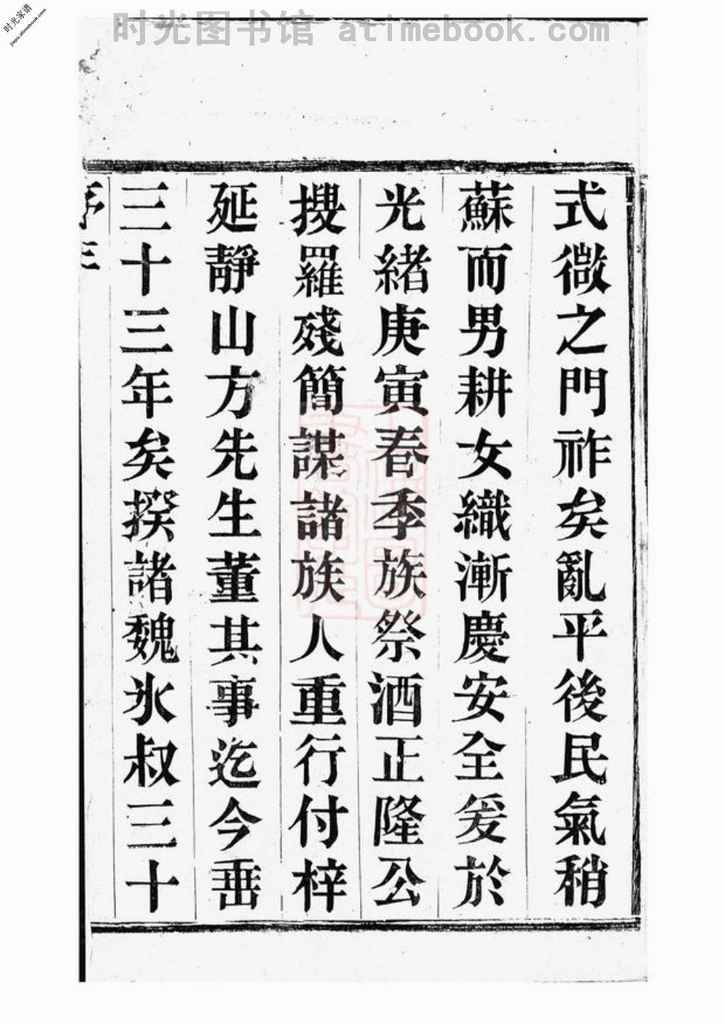 时光图书馆 atimebook.com
时光家谱
式微之門祚矣亂平後民氣稍
蘇而男耕女織漸慶安全爰於
光緒庚寅春季族祭酒正隆公
搜羅殘簡謀諸族人重行付梓
延靜山方先生董其事迄今垂
三十三年矣揆諸魏氷叔三十
序三